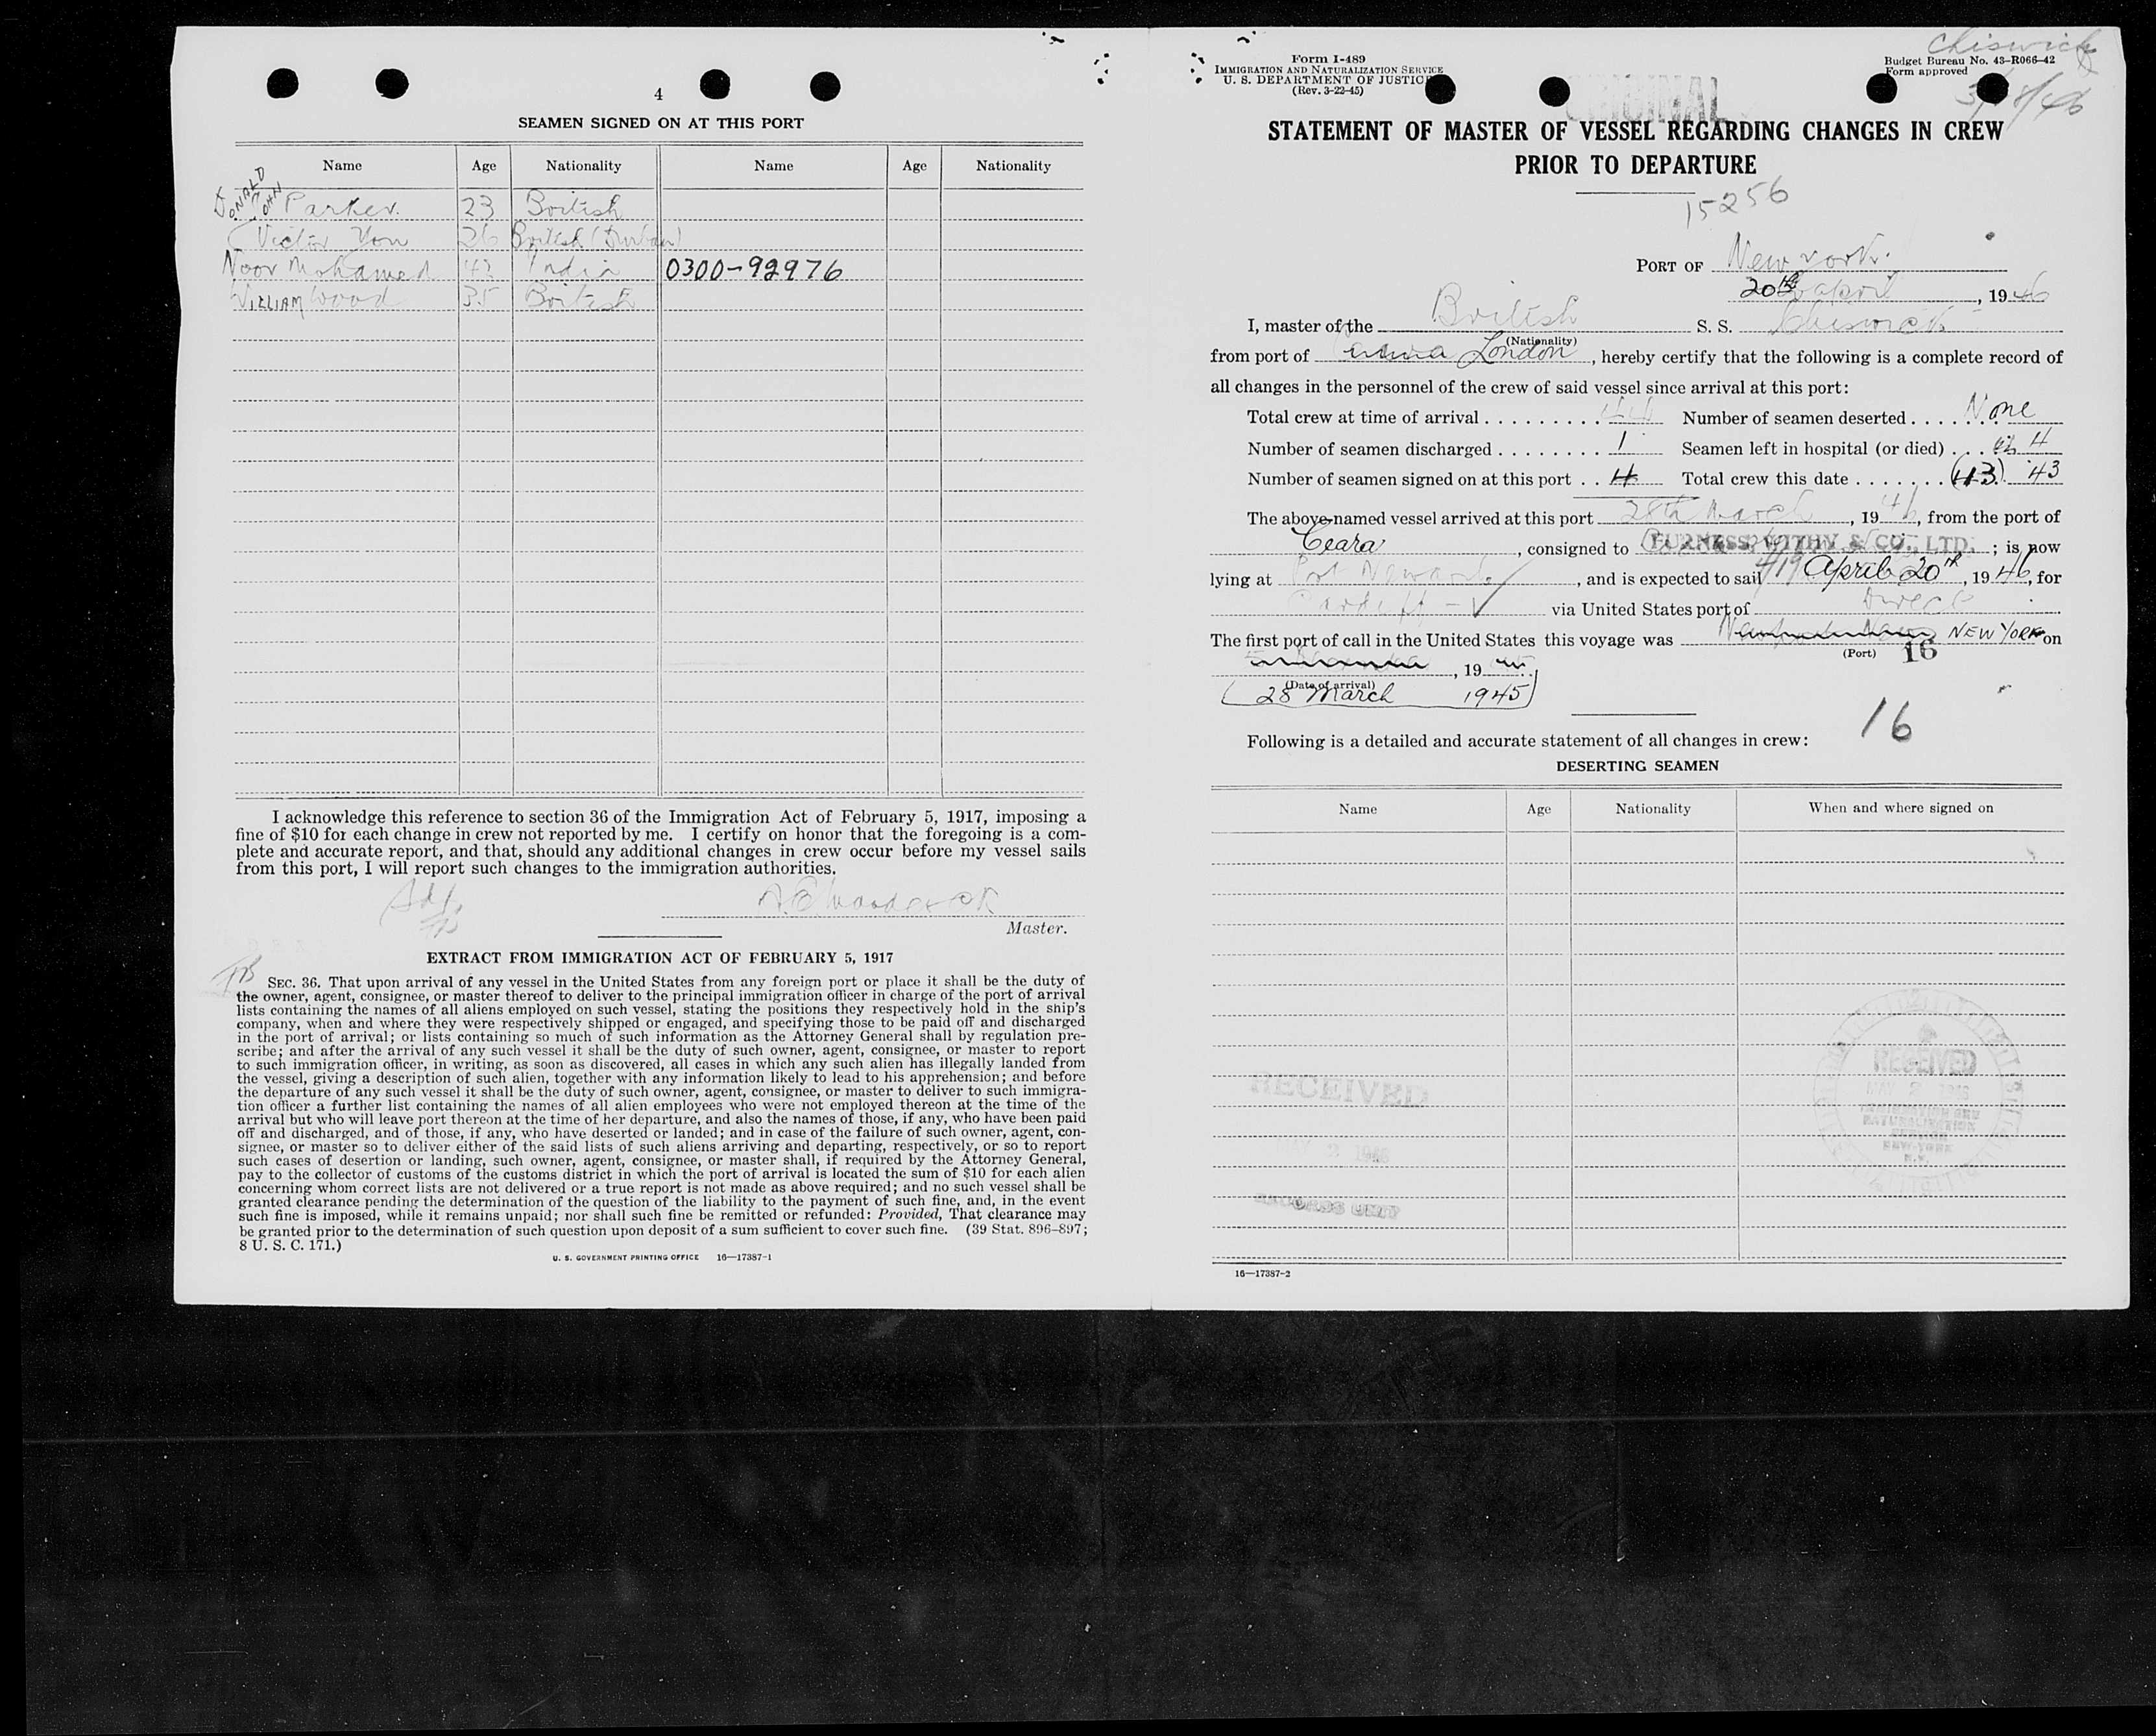 4
SEAMEN SIGNED ON AT THIS PORT
Name Age Nationality Name Age Nationality
DONALD JOHN Parker. 23 British
Victor You 26 British (Durban)
Noor Mohamed 42 India 0300-92976
WILLIAM Wood 35 British
I acknowledge this reference to section 36 of the Immigration Act of February 5, 1917, imposing a
fine of $10 for each change in crew not reported by me. I certify on honor that the foregoing is a com-
plete and accurate report, and that, should any additional changes in crew occur before my vessel sails
from this port, I will report such changes to the immigration authorities.
Master.
EXTRACT FROM IMMIGRATION ACT OF FEBRUARY 5, 1917
SEC. 36. That upon arrival of any vessel in the United States from any foreign port or place it shall be the duty of
the owner, agent, consignee, or master thereof to deliver to the principal immigration officer in charge of the port of arrival
lists containing the names of all aliens employed on such vessel, stating the positions they respectively hold in the ship's
company, when and where they were respectively shipped or engaged, and specifying those to be paid off and discharged
in the port of arrival; or lists containing so much of such information as the Attorney General shall by regulation pre-
scribe; and after the arrival of any such vessel it shall be the duty of such owner, agent, consignee, or master to report
to such immigration officer, in writing, as soon as discovered, all cases in which any such alien has illegally landed from
the vessel, giving a description of such alien, together with any information likely to lead to his apprehension; and before
the departure of any such vessel it shall be the duty of such owner, agent, consignee, or master to deliver to such immigra-
tion officer a further list containing the names of all alien employees who were not employed thereon at the time of the
arrival but who will leave port thereon at the time of her departure, and also the names of those, if any, who have been paid
off and discharged, and of those, if any, who have deserted or landed; and in case of the failure of such owner, agent, con-
signee, or master so to deliver either of the said lists of such aliens arriving and departing, respectively, or so to report
such cases of desertion or landing, such owner, agent, consignee, or master shall, if required by the Attorney General,
pay to the collector of customs of the customs district in which the port of arrival is located the sum of $10 for each alien
concerning whom correct lists are not delivered or a true report is not made as above required; and no such vessel shall be
granted clearance pending the determination of the question of the liability to the payment of such fine, and, in the event
such fine is imposed, while it remains unpaid; nor shall such fine be remitted or refunded: Provided, That clearance may
be granted prior to the determination of such question upon deposit of a sum sufficient to cover such fine. (39 Stat. 896–897;
8 U. S. C. 171.)
U. S. GOVERNMENT PRINTING OFFICE 16—17387-1
Chiswick
Form I-489
IMMIGRATION AND NATURALIZATION SERVICE
U. S. DEPARTMENT OF JUSTICE
(Rev. 3-22-45)
Budget Bureau No. 43-R066-42
Form approved
ORIGINAL
STATEMENT OF MASTER OF VESSEL REGARDING CHANGES IN CREW
PRIOR TO DEPARTURE
15256
PORT OF New York.
20th April, 1946
I, master of the British S. S. Chiswick
(Nationality)
from port of London, hereby certify that the following is a complete record of
all changes in the personnel of the crew of said vessel since arrival at this port:
Total crew at time of arrival 44 Number of seamen deserted None
Number of seamen discharged 1 Seamen left in hospital (or died) 4
Number of seamen signed on at this port 4 Total crew this date (43) 43
The above-named vessel arrived at this port 28th March, 1946, from the port of
Ceara, consigned to FURNESS, WITHY & CO., LTD.; is now
lying at Port Newark, and is expected to sail 4/19 April 20th, 1946, for
Cardiff - via United States port of Direct
The first port of call in the United States this voyage was NEW YORK on
(Port) 16
, 19
(Date of arrival)
28 March 1945
16
Following is a detailed and accurate statement of all changes in crew:
DESERTING SEAMEN
Name Age Nationality When and where signed on
RECEIVED
MAY 2 1946
RECORDS UNIT
RECEIVED
MAY 2 1946
IMMIGRATION AND
NATURALIZATION
SERVICE
NEW YORK
N.Y.
16—17387-2